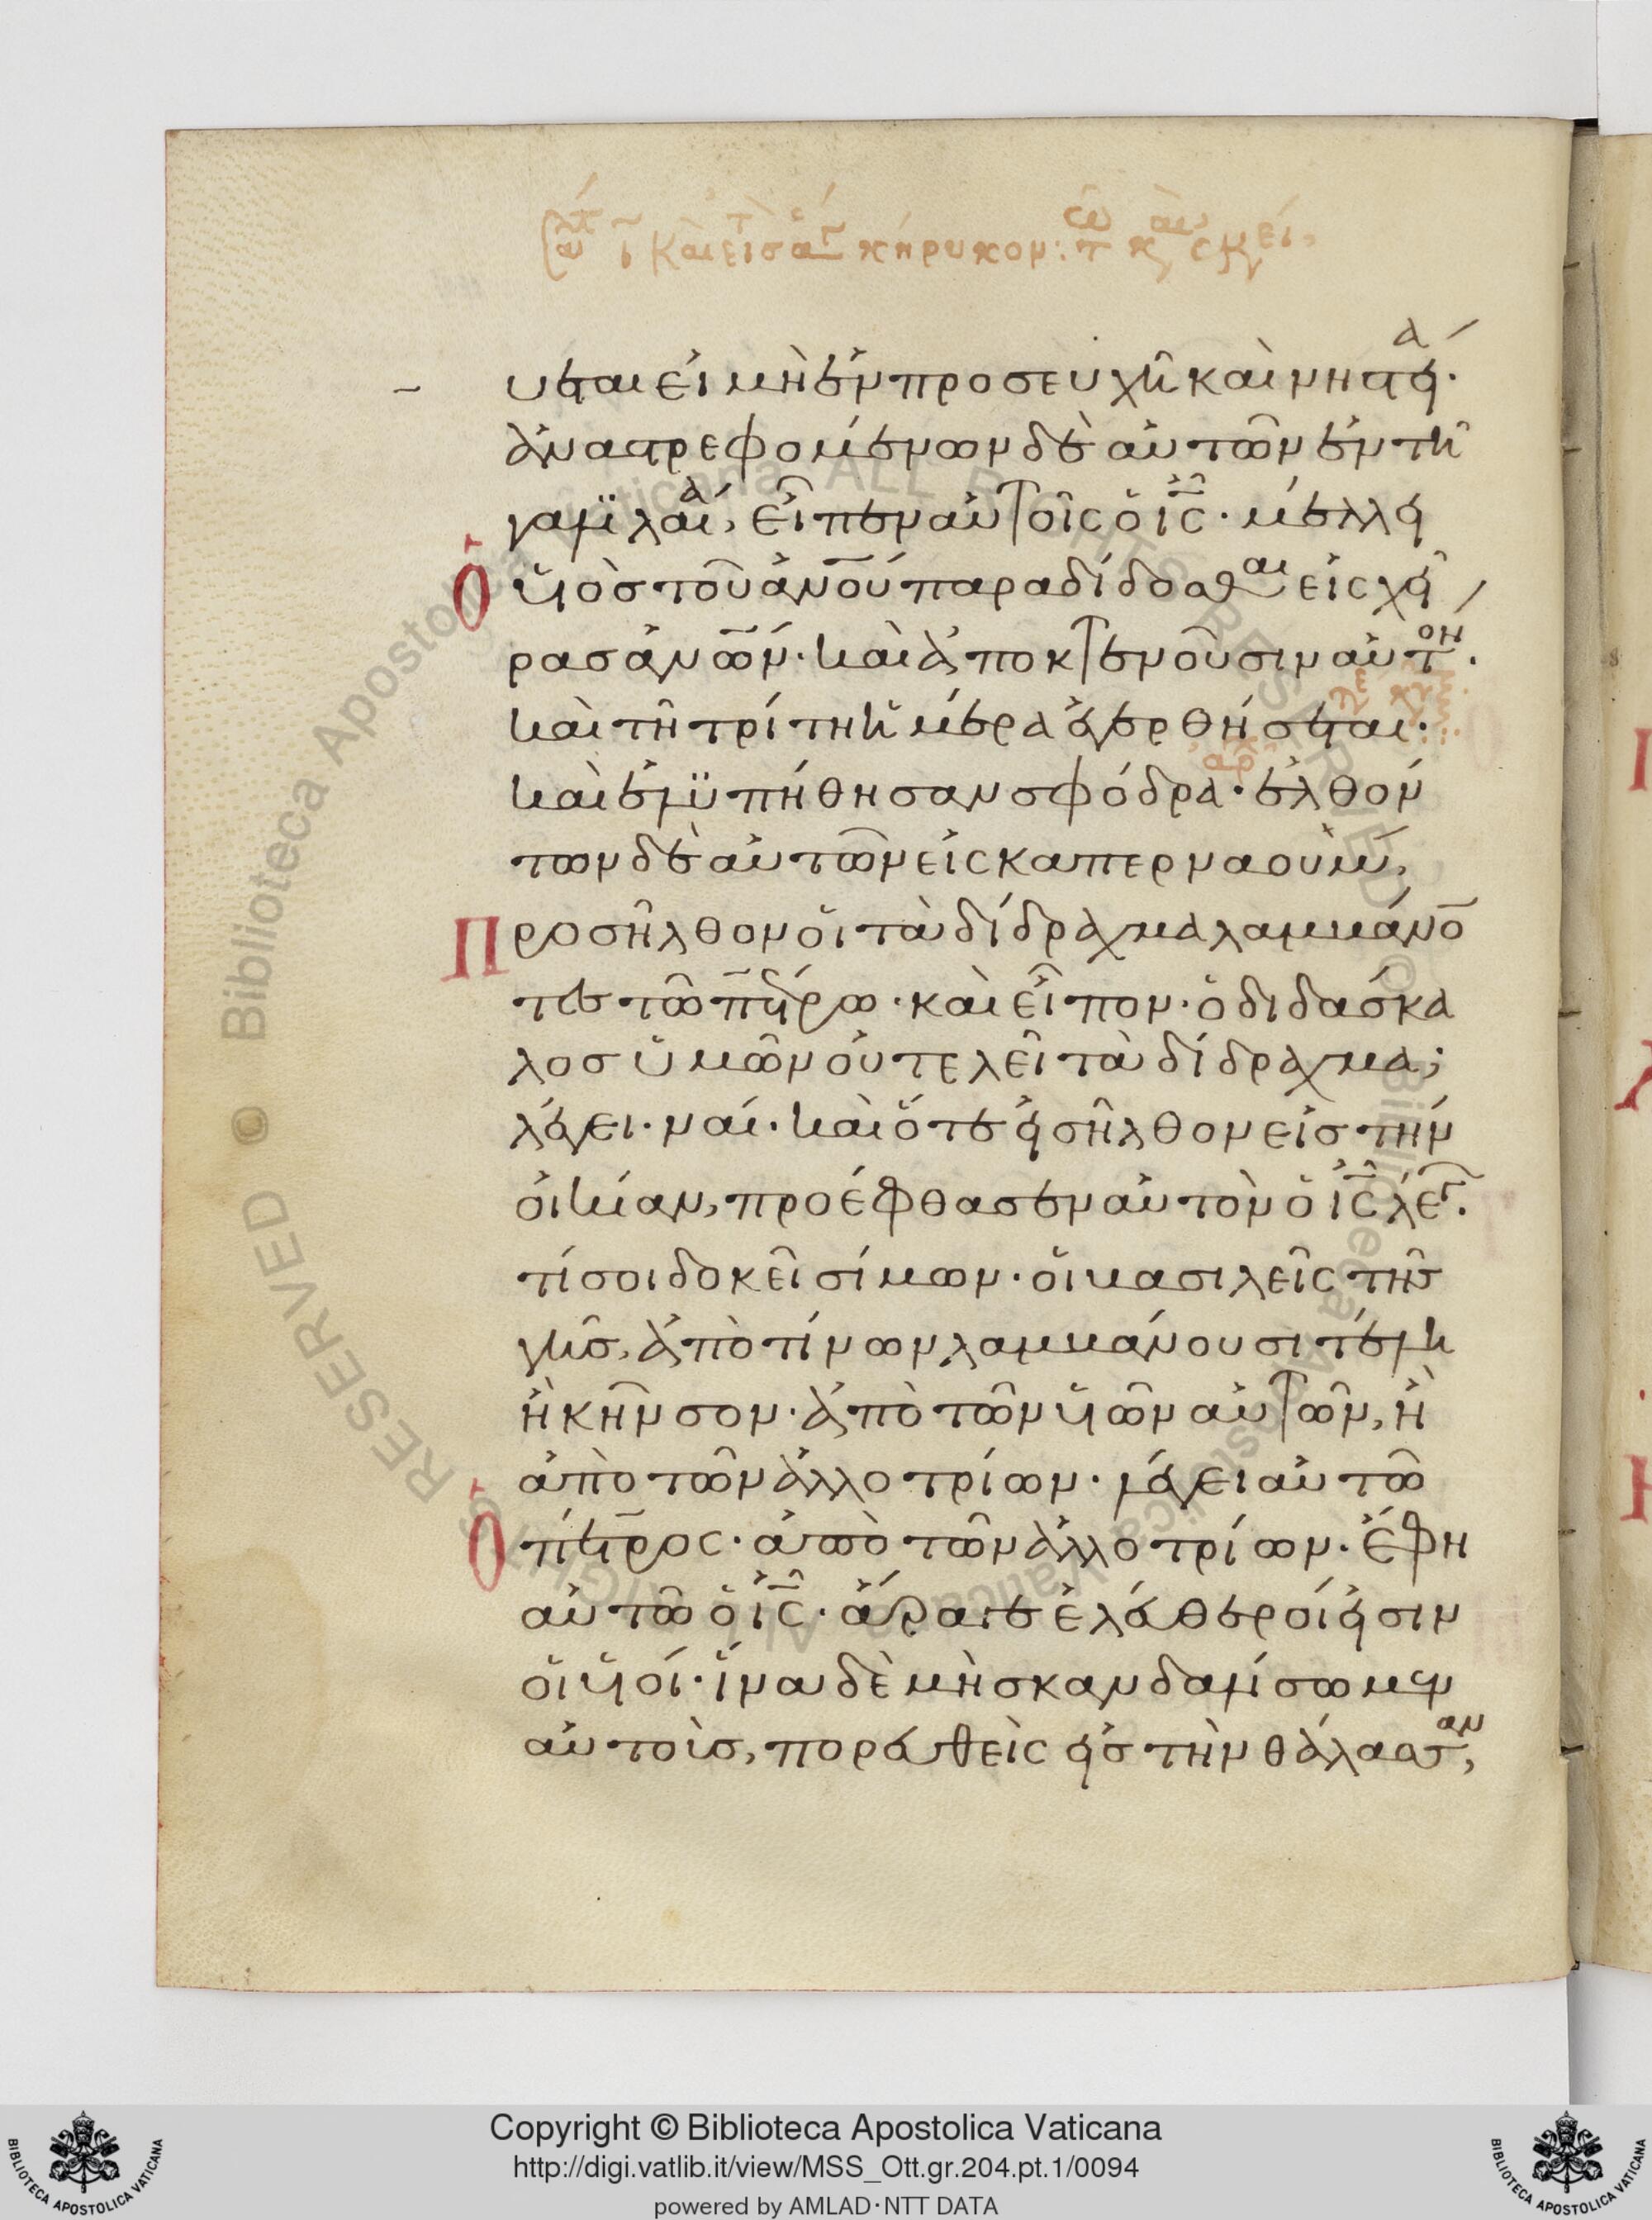 ύεται εἰ μὴ ἐν προσευχῇ καὶ νηστεία.
ἀναστρεφομένων δὲ αὐτῶν ἐν τῇ
γαλιλαία, εἶπεν αὐτοῖς ὁ ις. μέλλει
ὁ υἱὸς τοῦ ανου παραδίδοσθαι εἰς χεῖ
ρας ανων. καὶ ἀποκτενοῦσιν αὐτον.
καὶ τῇ τρίτη ἡμέρα ἐγερθήσεται.
καὶ ἐλυπήθησαν σφόδρα. ἐλθόν
των δὲ αὐτῶν εἰς καπερναούμ,
Προσῆλθον οἱ τὰ δίδραχμα λαμβάνο
τες τῶ πέτρω. καὶ εἶπον. ὁ διδάσκα
λος ὑμῶν οὐ τελεῖ τὰ δίδραχμα;
λέγει. ναί. καὶ ὅτε εἰσῆλθον εἰς τὴν
οἰκίαν, προέφθασεν αὐτὸν ὁ ις λέγ.
τί σοι δοκεῖ σίμων. οἱ βασιλεῖς τῆς
γῆς, ἀπὸ τίνων λαμβάνουσι τέλη
ἢ κῆνσον. ἀπὸ τῶν υἱῶν αὐτῶν, ἢ
ἀπὸ τῶν ἀλλοτρίων. λέγει αὐτῶ
ὁ πέτρος. ἀπὸ τῶν ἀλλοτρίων. ἔφη
αὐτῶ ὁ ις. ἄραγε ἐλεύθεροί εἰσιν
οἱ υἱοί. ἵνα δὲ μὴ σκανδαλίσωμεν
αὐτοὺς, πορευθεὶς εἰς τὴν θάλασσαν,
Copyright © Biblioteca Apostolica Vaticana
http://digi.vatlib.it/view/MSS_Ott.gr.204.pt.1/0094
powered by AMLAD·NTT DATA